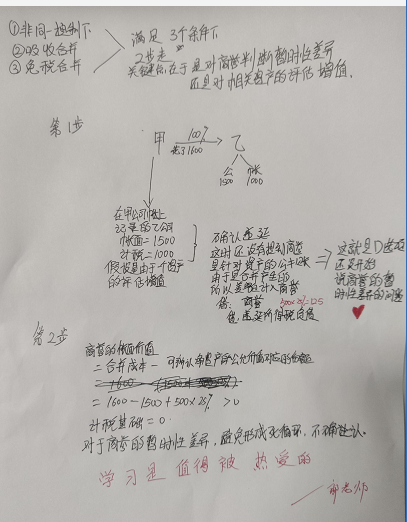 ①非同一控制下
②吸收合并
③免税合并
满足 3个条件下
2步走
关键是在于是对商誉判断暂时性差异
还是对相关资产的评估增值.
第1步
甲 100% 乙
花了1600
公 帐
1500 1000
在甲公司帐上
记录的乙公司
帐面=1500
计税=1000
假设是由于一个资产
的评估增值
确认递延
这时还没有想到商誉
是针对资产的公允
由于是合并产生的
所以差额计入商誉
借: 商誉 500×25%=125
贷: 递延所得税负债
⇒ 这就是D选项
还没开始
说商誉的暂
时性差异的问题
第2步
商誉的帐面价值
=合并成本-可辨认净资产公允价值对应的份额
=1600-1500+500×25% >0
计税基础=0
对于商誉的暂时性差异,避免形成死循环,不确认.
学习是值得被热爱的